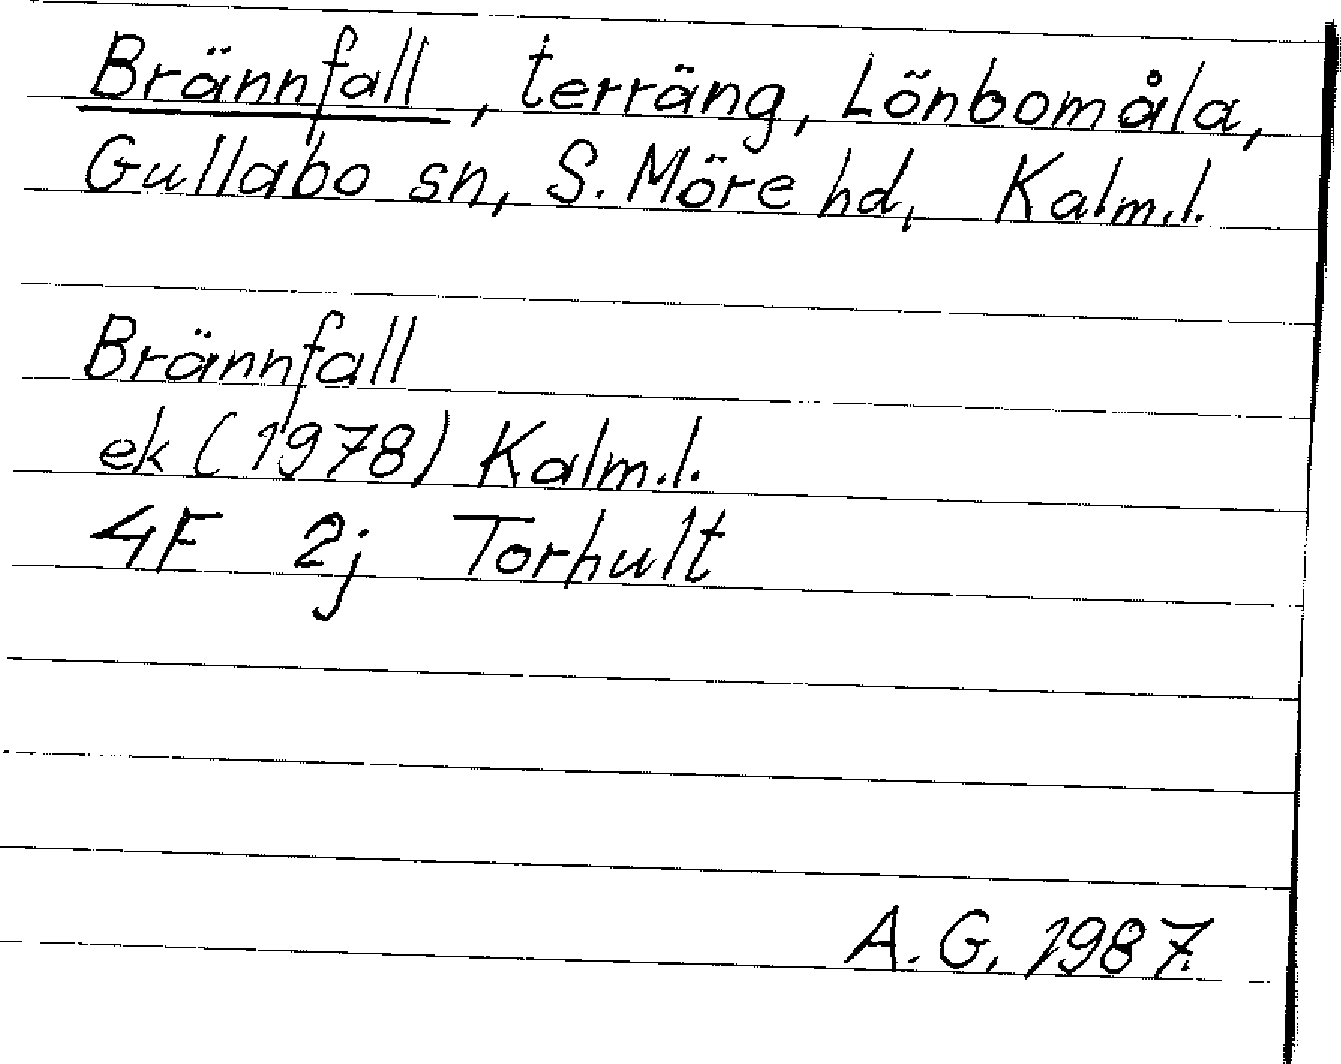 Brännfall, terräng, Lönbomåla,
Gullabo sn, S. Möre hd, Kalm.l.
Brännfall
ek (1978) Kalm.l.
4F 2j Torhult
A.G. 1987.